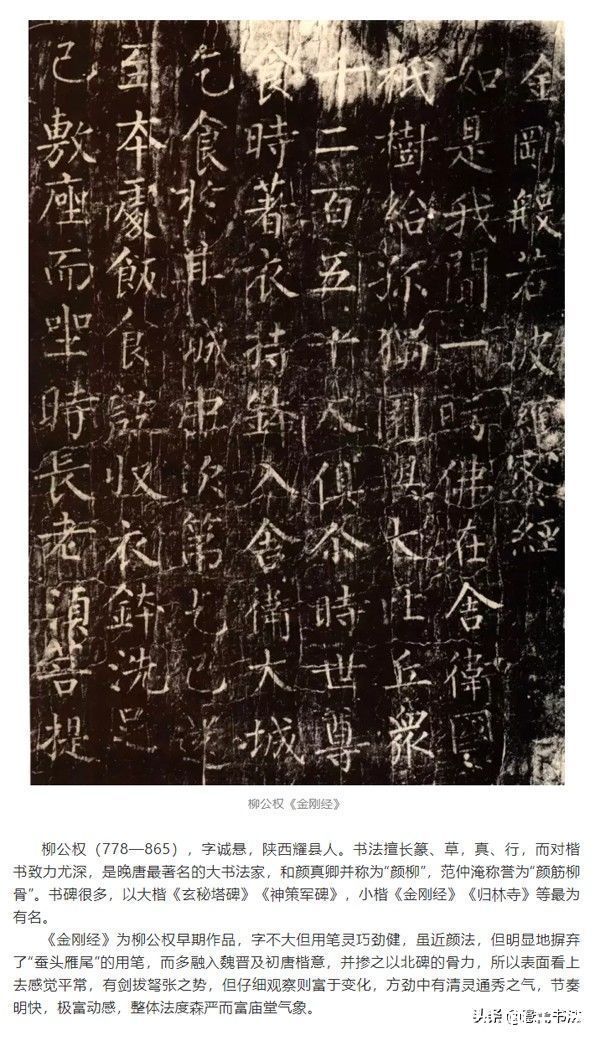 金剛般若波羅蜜經
如是我聞一時佛在舍衛國
祇樹給孤獨園與大比丘衆
千二百五十人俱尒時世尊
食時著衣持鉢入舍衛大城
乞食於其城中次第乞已還
至本處飯食訖収衣鉢洗足
已敷座而坐時長老湏菩提
柳公权《金刚经》
柳公权（778—865），字诚悬，陕西耀县人。书法擅长篆、草，真、行，而对楷
书致力尤深，是晚唐最著名的大书法家，和颜真卿并称为“颜柳”，范仲淹称誉为“颜筋柳
骨”。书碑很多，以大楷《玄秘塔碑》《神策军碑》，小楷《金刚经》《归林寺》等最为
有名。
《金刚经》为柳公权早期作品，字不大但用笔灵巧劲健，虽近颜法，但明显地摒弃
了“蚕头雁尾”的用笔，而多融入魏晋及初唐楷意，并掺之以北碑的骨力，所以表面看上
去感觉平常，有剑拔弩张之势，但仔细观察则富于变化，方劲中有清灵通秀之气，节奏
明快，极富动感，整体法度森严而富庙堂气象。
头条 书法